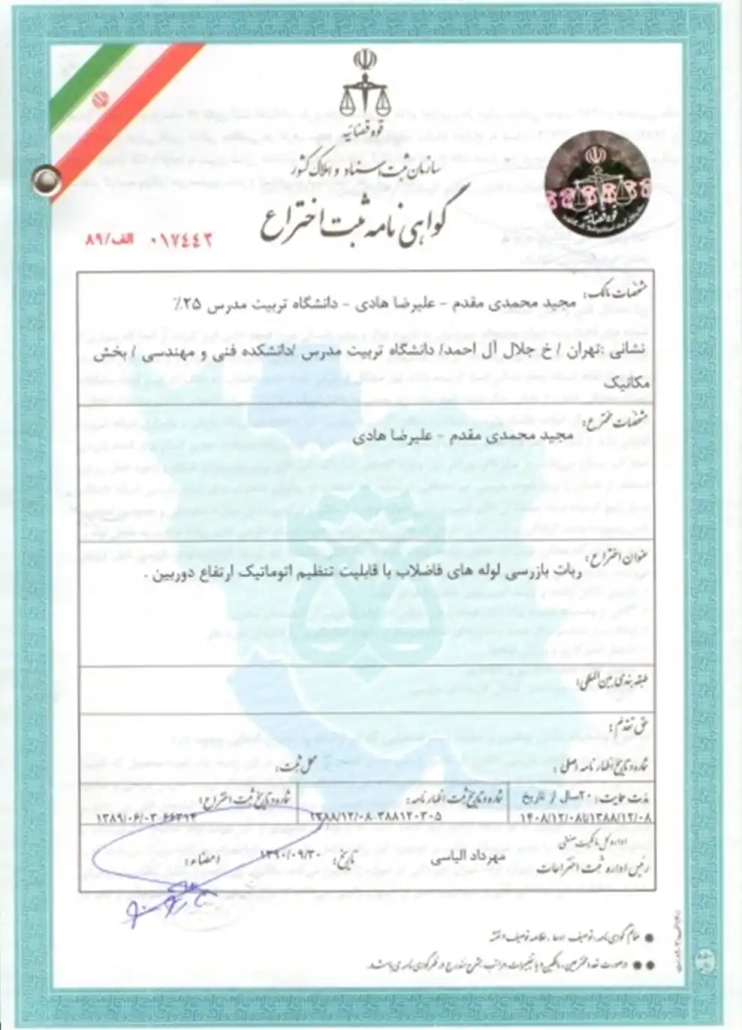 قوه قضائیه
سازمان ثبت اسناد و املاک کشور
گواهی نامه ثبت اختراع
۰۱۷٤٤۲ الف/۸۹
مشخصات مالک: مجید محمدی مقدم - علیرضا هادی - دانشگاه تربیت مدرس ۲۵٪
نشانی :تهران / خ جلال آل احمد/ دانشگاه تربیت مدرس /دانشکده فنی و مهندسی / بخش
مکانیک
مشخصات مخترع: مجید محمدی مقدم - علیرضا هادی
عنوان اختراع: ربات بازرسی لوله های فاضلاب با قابلیت تنظیم اتوماتیک ارتفاع دوربین .
طبقه بندی بین المللی:
حق تقدم:
شماره و تاریخ اظهار نامه اصلی: محل ثبت:
مدت حمایت: ۲۰سال از تاریخ شماره و تاریخ ثبت اظهارنامه: شماره و تاریخ ثبت اختراع:
۱۳۸۸/۱۲/۰۸تا۱۴۰۸/۱۲/۰۸ ۳۸۸۱۲۰۳۰۵-۱۳۸۸/۱۲/۰۸ ۶۶۳۱۴-۱۳۸۹/۰۶/۰۳
اداره کل مالکیت صنعتی
رئیس اداره ثبت اختراعات مهرداد الیاسی تاریخ: ۱۳۹۰/۰۹/۳۰ امضاء:
ضمائم گواهی نامه: توصیف، ادعا، خلاصه توصیف و نقشه